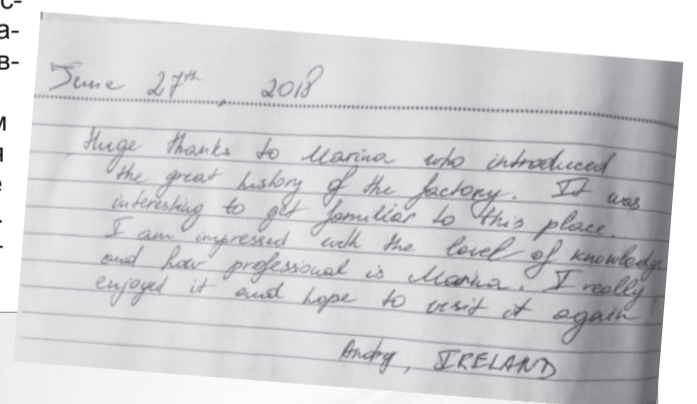 с-
а-
в-
м
я
е
.
-
June 27th, 2018
Huge thanks to Marina who introduced
the great history of the factory. It was
interesting to get familiar to this place.
I am impressed with the level of knowledge
and how professional is Marina. I really
enjoyed it and hope to visit it again
Andry, IRELAND